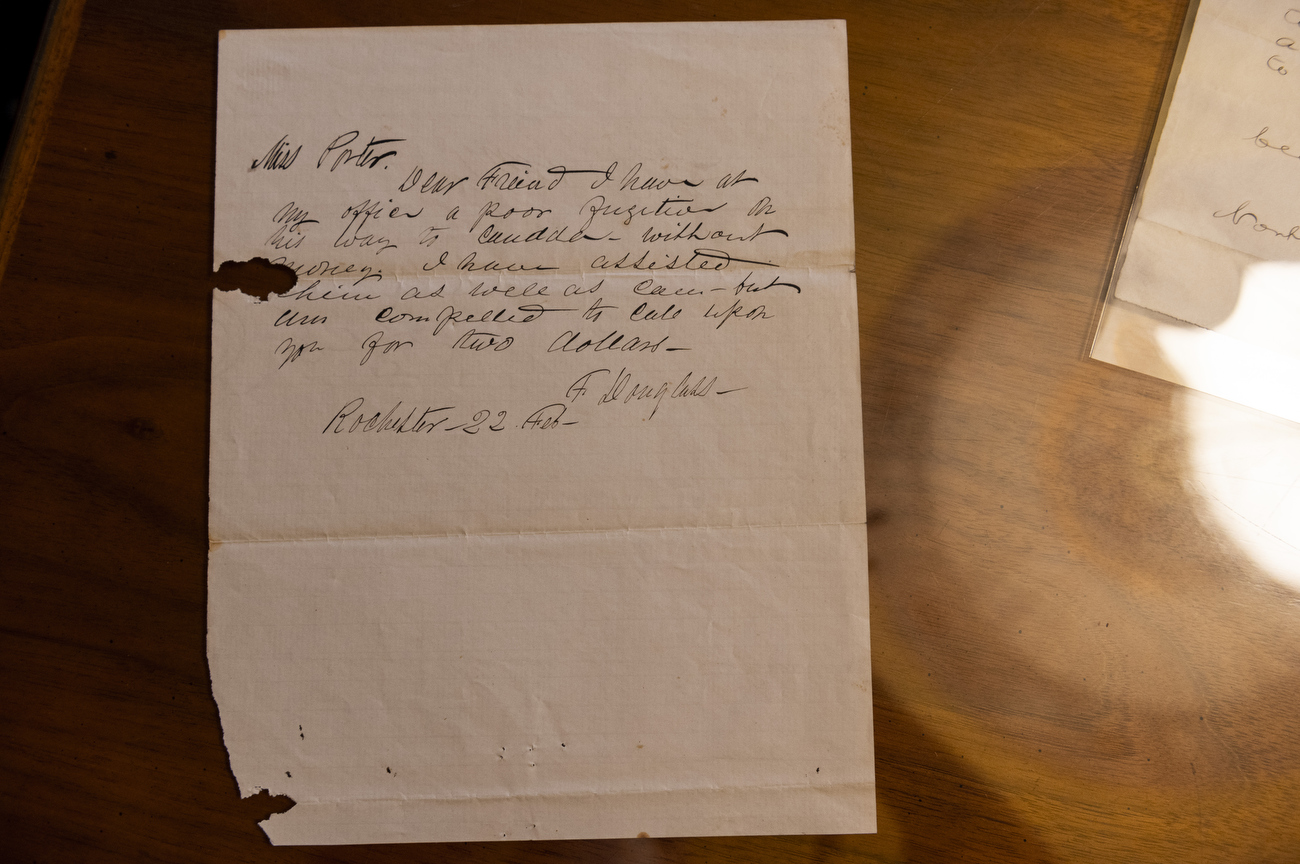 Miss Porter.
Dear Friend I have at
my office a poor fugitive on
his way to Canada - without
money. I have assisted
him as well as I can - but
am compelled to call upon
you for two dollars -
F Douglass -
Rochester - 22. Feb -
a
to